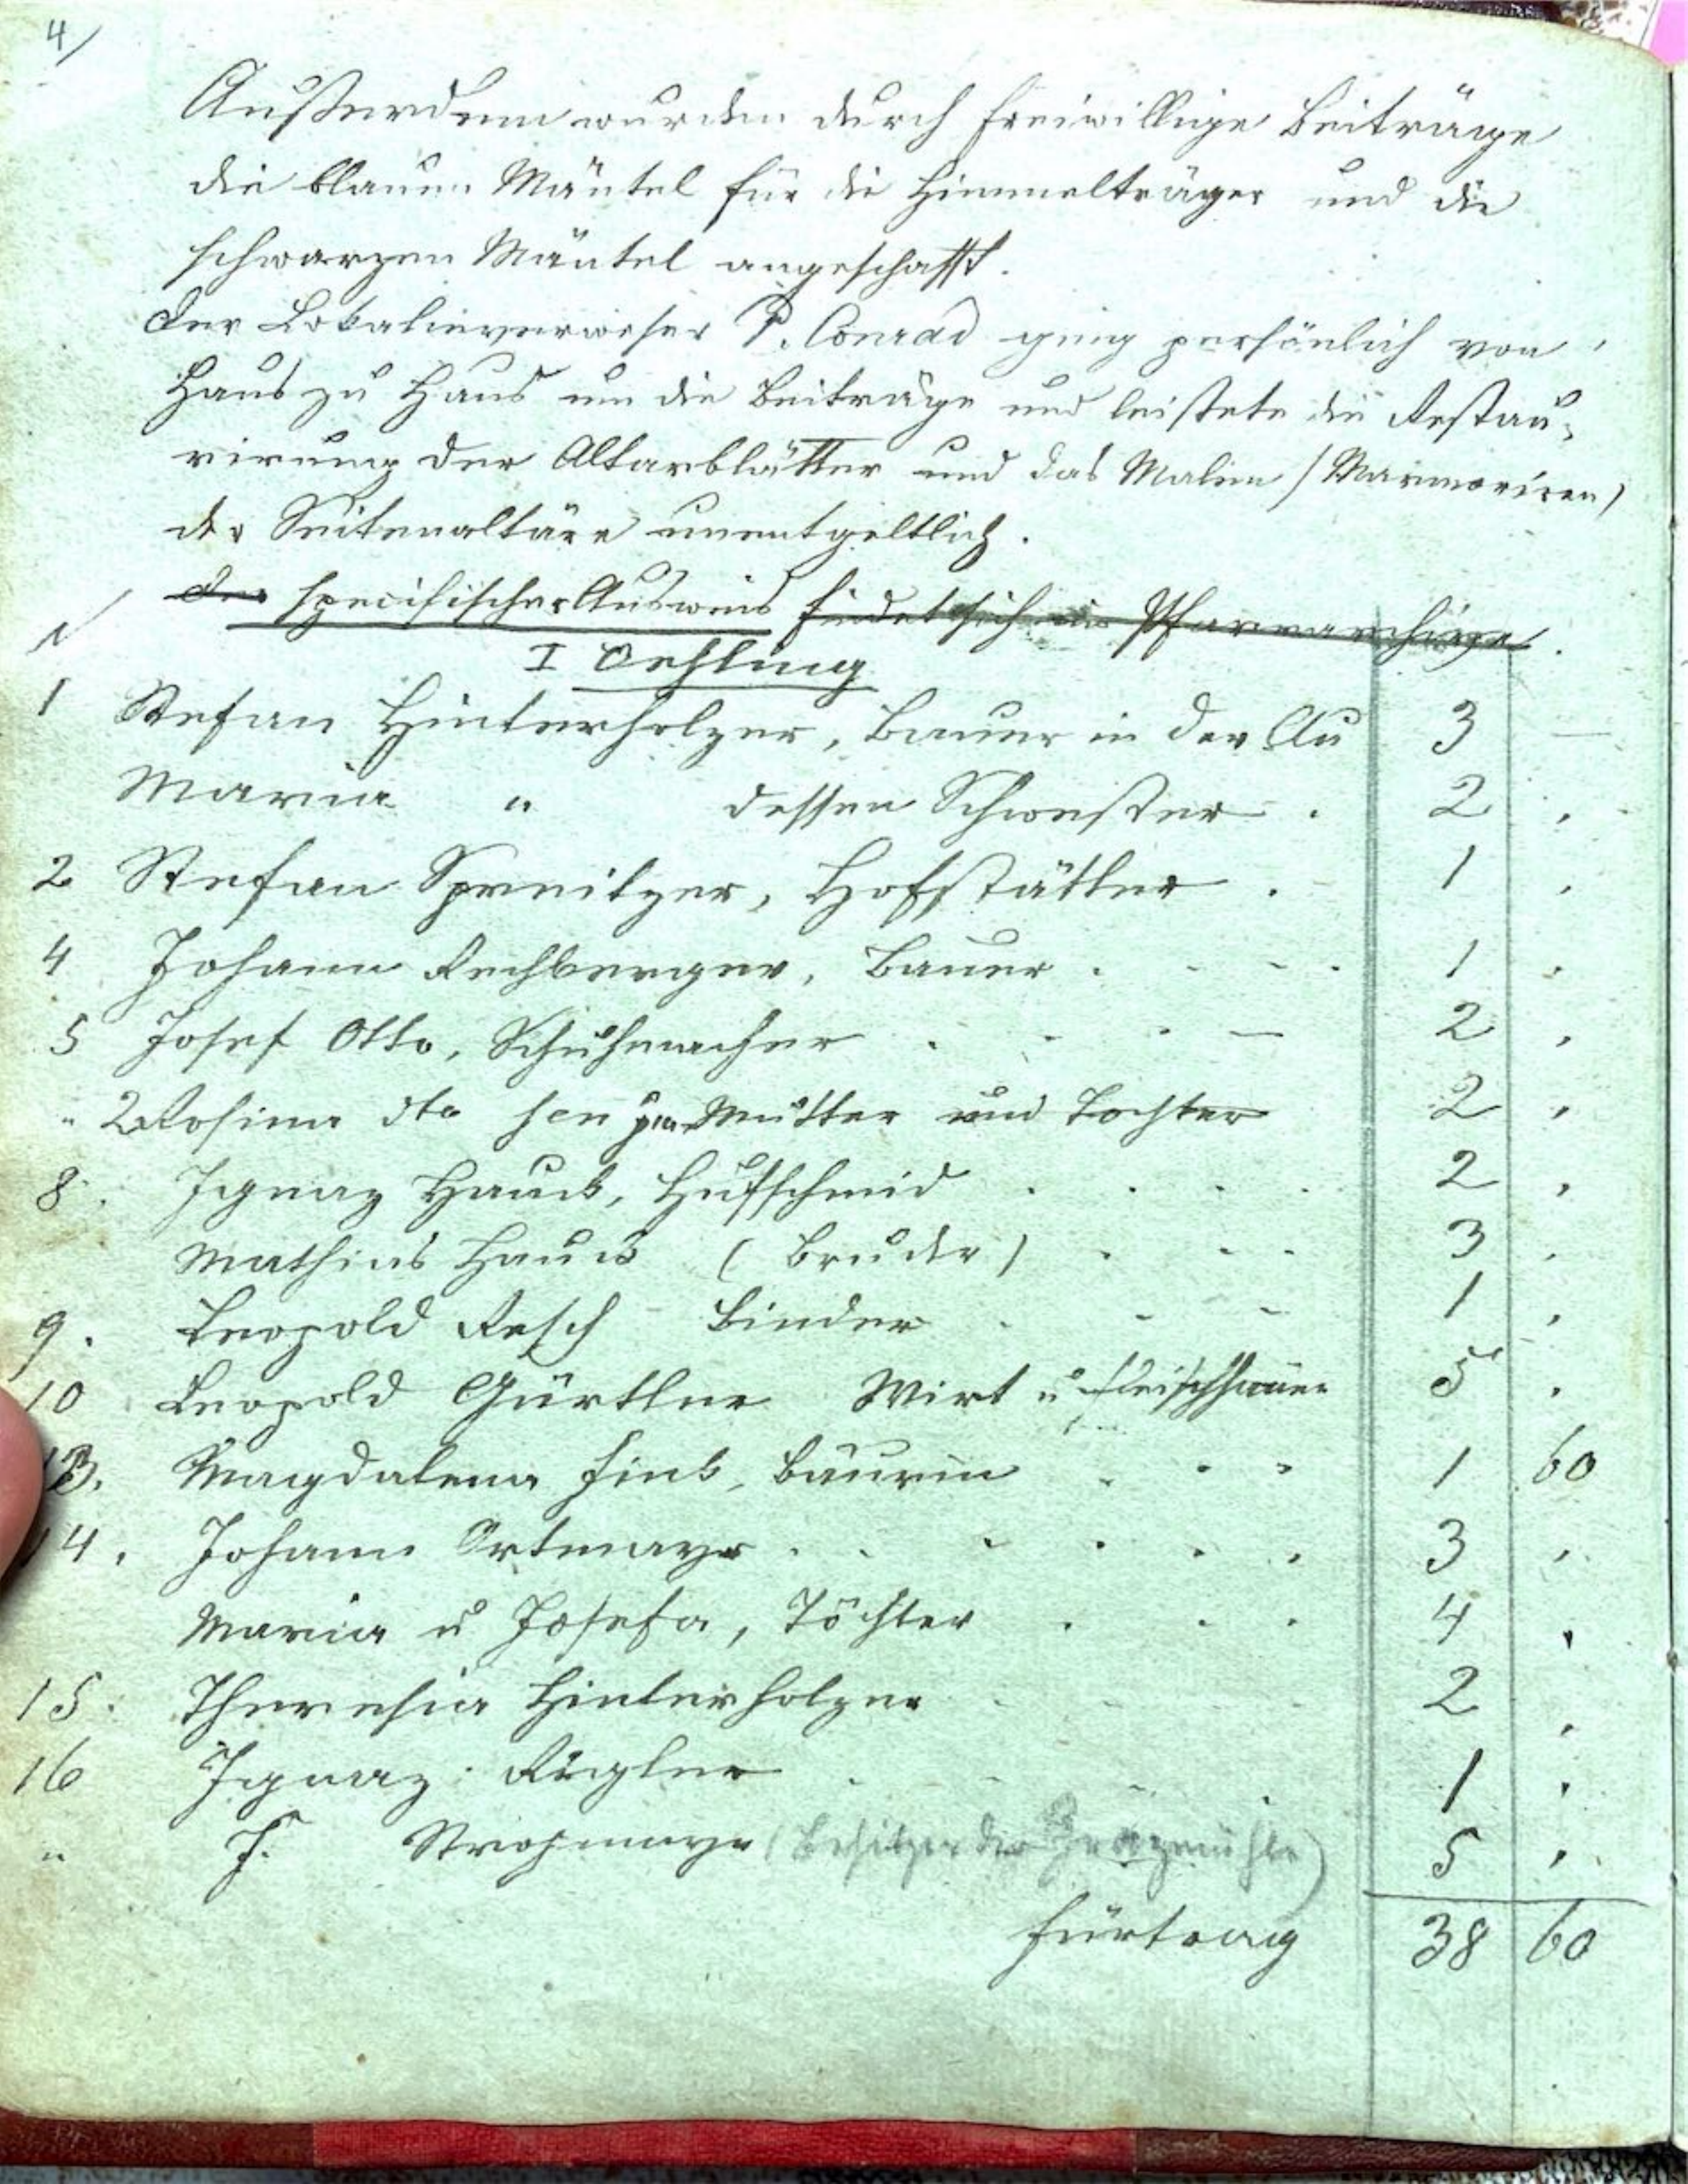 4/
Außerdem wurden durch freiwillige Beiträge
die blauen Mäntel für die Himmelträger und die
schwarzen Mäntel angeschafft.
Der Lokalieverweser P. Conrad ging persönlich von
Haus zu Haus um die Beiträge und leistete die Restau-
rirung der Altarblätter und das Malen /Marmoriren/
der Seitenaltäre unentgeltlich.
Der specifischer Ausweis findet sich im Pfarrarchive.
N
I Oehling
1 Stefan Hinterholzer, Bauer in der Au 3 —
Maria " dessen Schwester . 2 .
2 Stefan Spreitzer, Hofstätter . 1 .
4 Johann Rechberger, Bauer . - - . 1 .
5 Josef Otto, Schuhmacher . - . — 2 .
" 2 Rosina dto sen jun Mutter und Tochter 2 .
8. Ignaz Hauck, Hufschmid . . . . 2 .
Mathias Hauck (Bruder) . - - 3 .
9. Leopold Resch Binder . - - 1 .
10 Leopold Gürtler Wirt u Fleischhauer 5 .
13. Magdalena Fink, Bäurin . . . 1 60
14. Johann Ortmayr . . . . . . 3 .
Maria u Josefa, Töchter . . . 4 .
15. Theresia Hinterholzer 2 .
16 Ignaz Rigler . 1 .
" J. Strohmayr (Besitzer der ) 5 .
Fürtrag 38 60